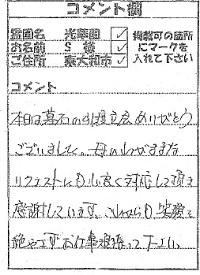 コメント欄
霊園名 光華園 ✓
お名前 S 様 ✓
ご住所 東大和市 ✓
掲載可の箇所
にマークを
入れて下さい
コメント
本日は墓石の引渡立会ありがとう
ございました。母のわがままな
リクエストにも心よく対応して頂き
感謝しています。これからも笑顔で
お仕事頑張って下さい